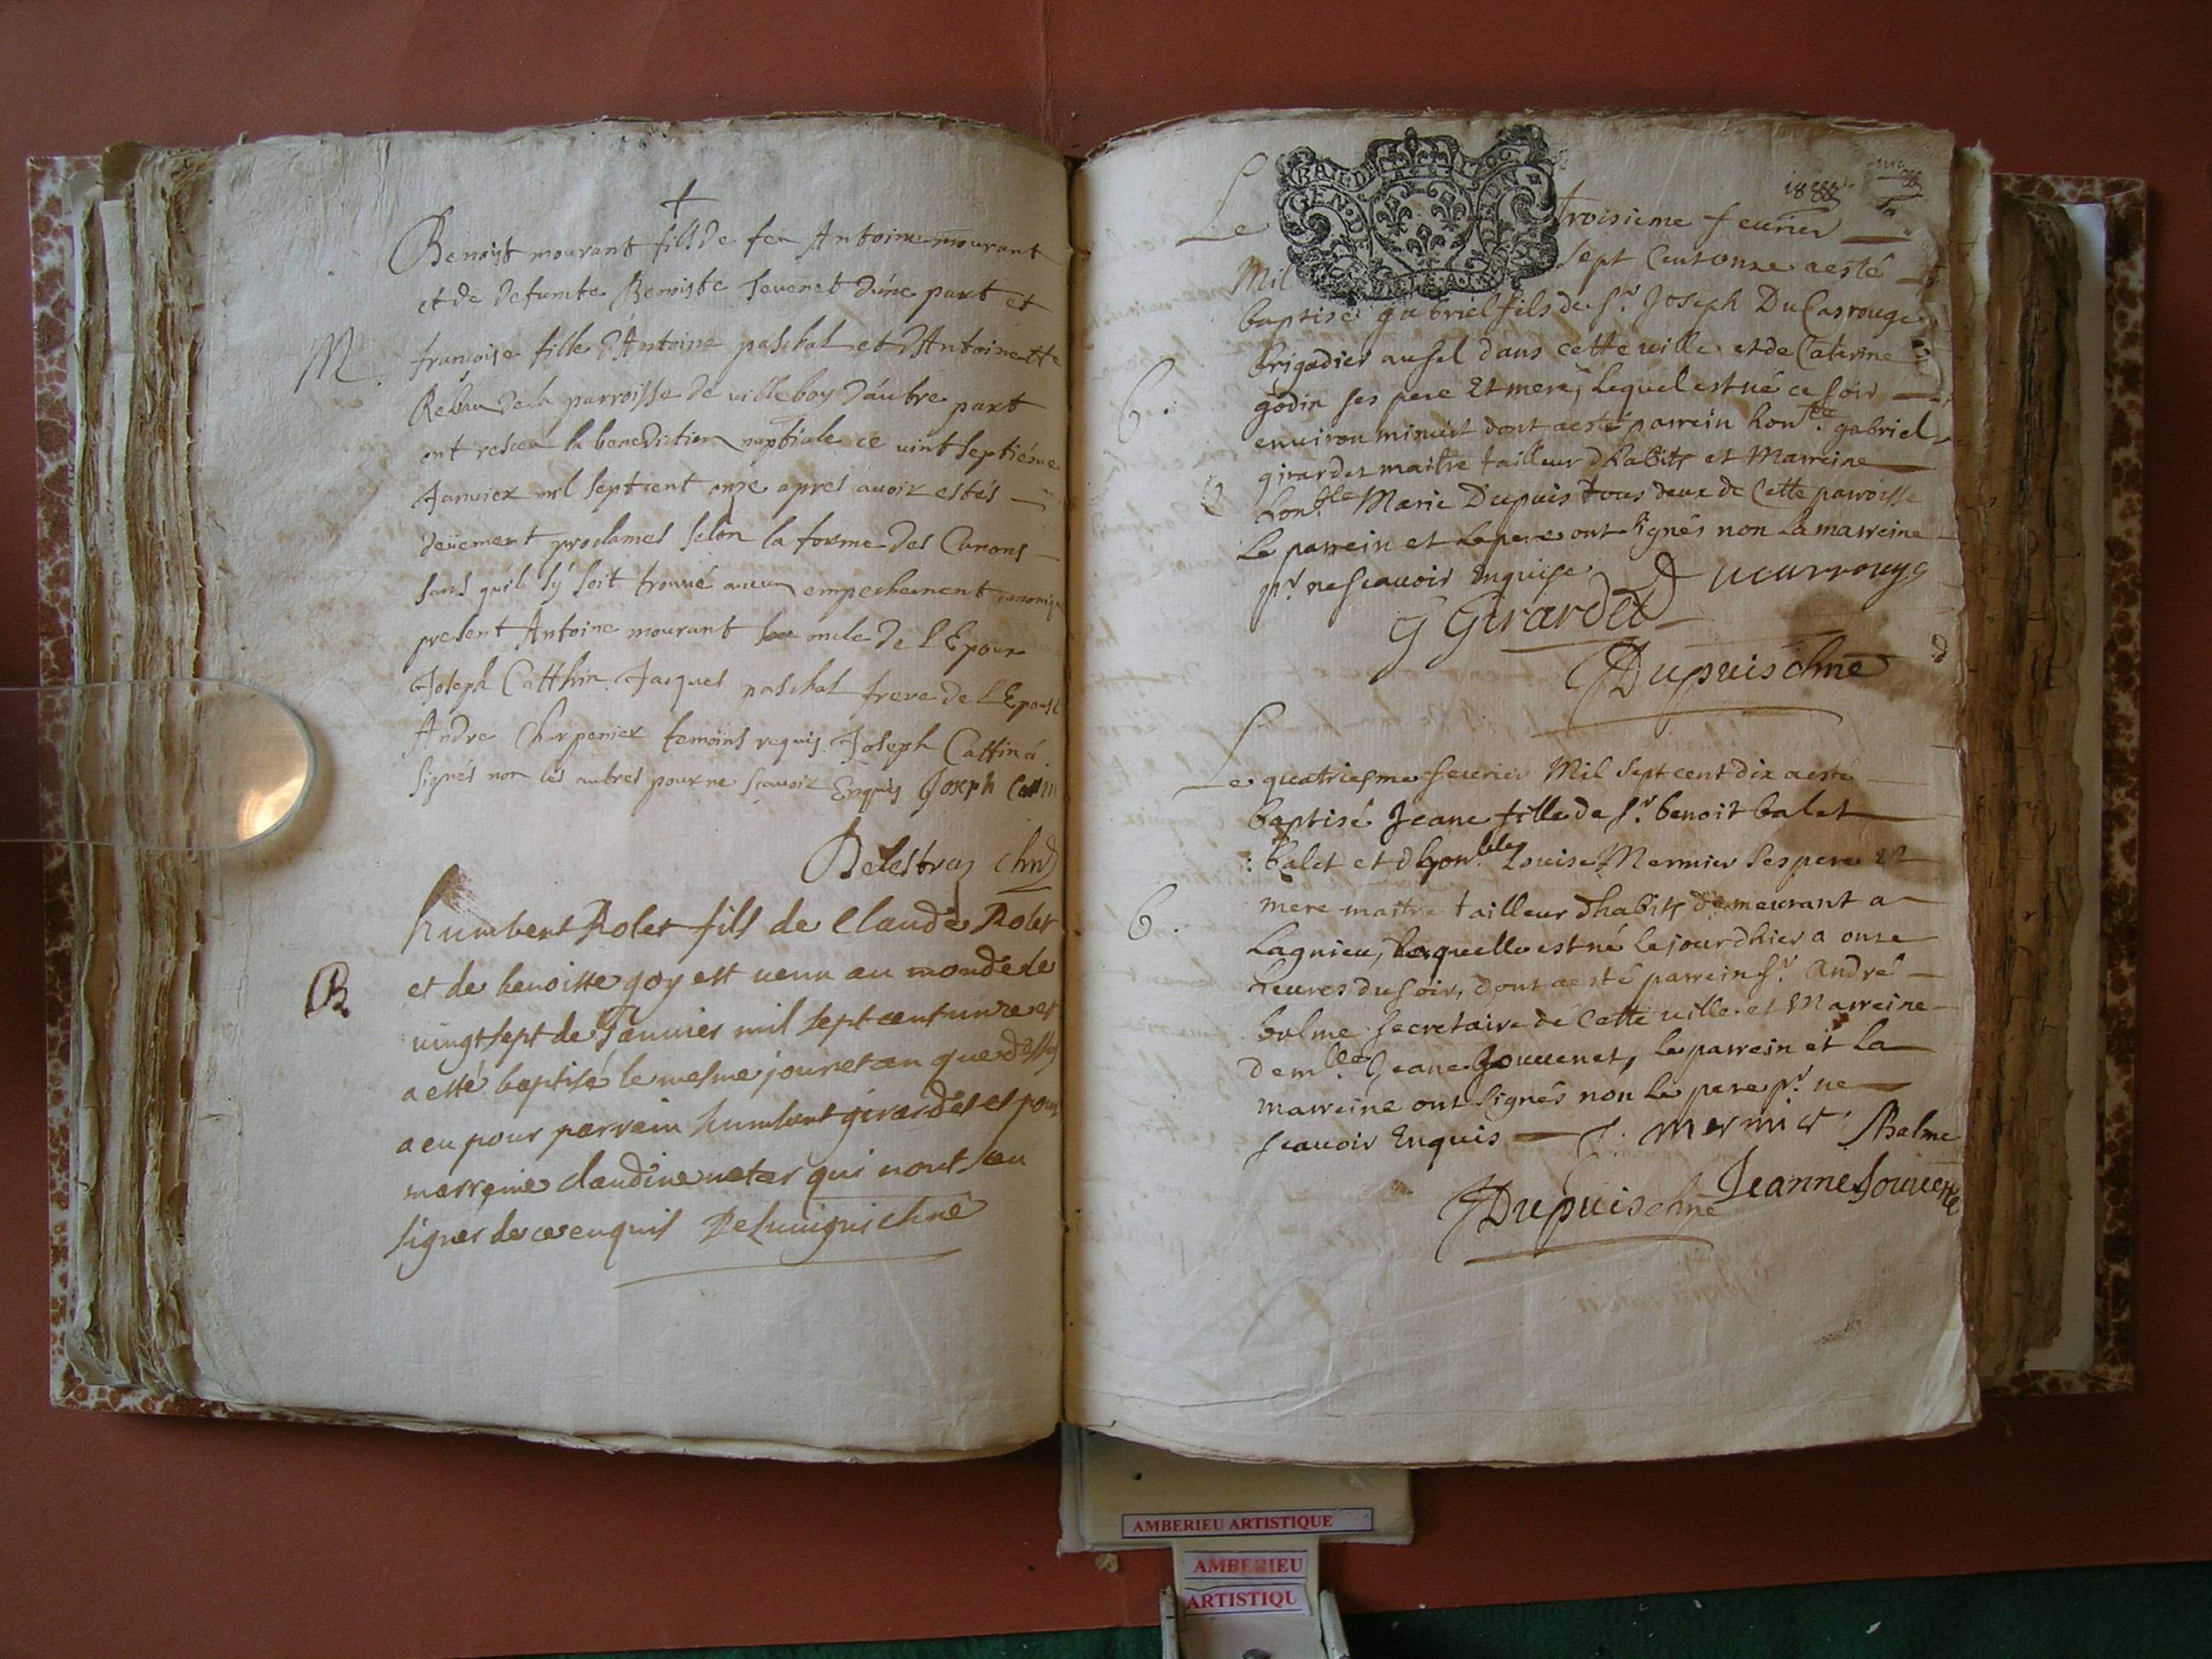 Benoist mourant fils de feu Antoine mourant
et de defunte Benoiste Jevenet d'une part et
M.
francoise fille d'Antoine paschal et d'Antoinette
de la parroisse de villeboy d'autre part
ont resceu la benediction nuptiale ce vint septiéme
Janvier mil septcent onze apres avoir estés
deüement proclamés selon la forme des Canons
sans quil sy soit trouvé aucun empechement canonique
present Antoine mourant oncle de L'Epoux
Joseph Catthin Jacques paschal frere de L'Epouse
André Charpenier temoins requis Joseph Cattin á
signés non les autres pour ne scavoir Enquis Joseph Cattin
Delestraz
humbert Rolet fils de Claude Rolet
B
et de benoitte goy est venu au monde le
vingt sept de Janvier mil sept cent unze et
a esté baptisé le mesme jour et an que dessus
a eu pour parrein humbert girardet et pour
marreine claudine qui nont sceu
signer de ce enquis
Le troisieme fevrier
Mil sept Centonze aesté
baptisé gabriel fils de Sr. Joseph DuCarrouge
brigadier au sel dans cette ville et de Caterine
6.
godin ses pere Et mere, Lequel est né ce soir
environ minuit dont aesté parrein hon.ble gabriel
girardet maitre tailleur dhabits et Marreine
hon.ble Marie Dupuis tous deux de Cette parroisse
Le parrein et Le pere ont signés non La marreine
pr. ne scavoir Enquise. Ducarrouge
G Girardet
Dupuis chne
Le quatriesme fevrier Mil Sept cent dix aesté
baptisé Jeane fille de Sr. benoit balet
balet et dhon.ble Louise Mermier ses pere et
6.
mere maitre tailleur dhabits demeurant a
Lagnieu, Laquelle est né le jourdhier a onze
heures du soir, dont aesté parrein Sr. André
balme secretaire de Cette ville et Marreine
dem.lle Jeane Jouvenet, Le parrein et La
marreine ont signés non Le pere pr. ne
scavoir Enquis mermier Balme
Jeanne Jouvenet
Dupuis chne
AMBERIEU ARTISTIQUE
AMBERIEU
ARTISTIQU